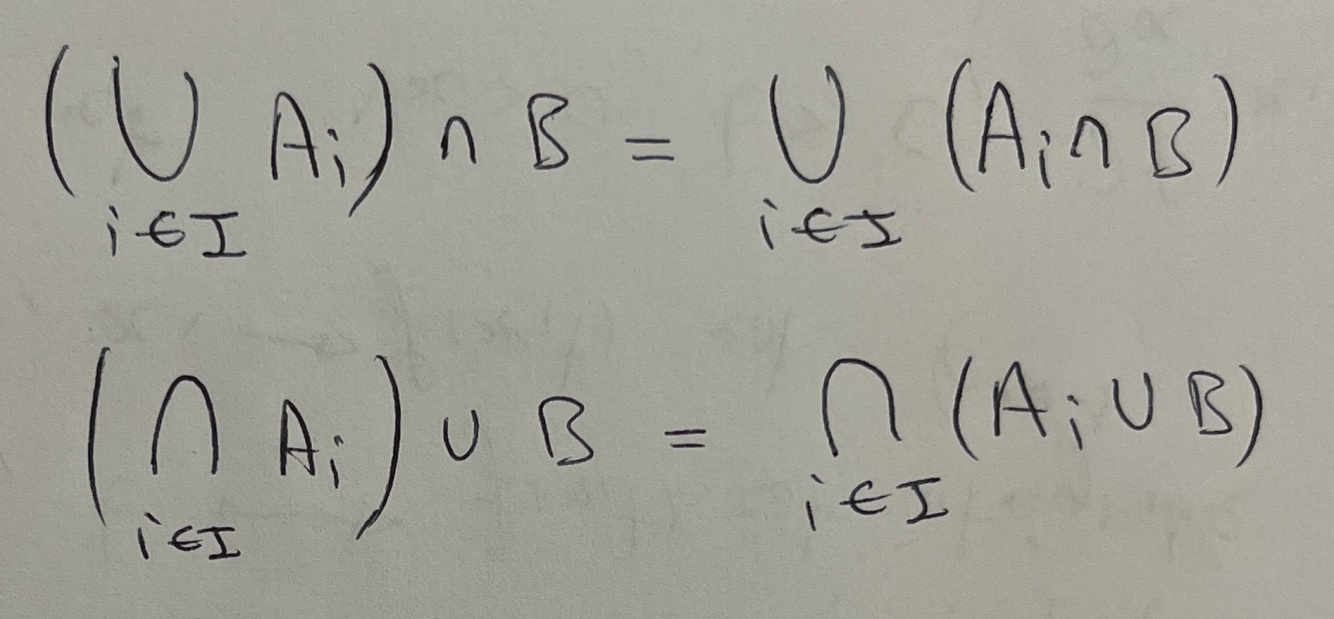 (⋃_{i∈I} A_i) ∩ B = ⋃_{i∈I} (A_i ∩ B)
(⋂_{i∈I} A_i) ∪ B = ⋂_{i∈I} (A_i ∪ B)